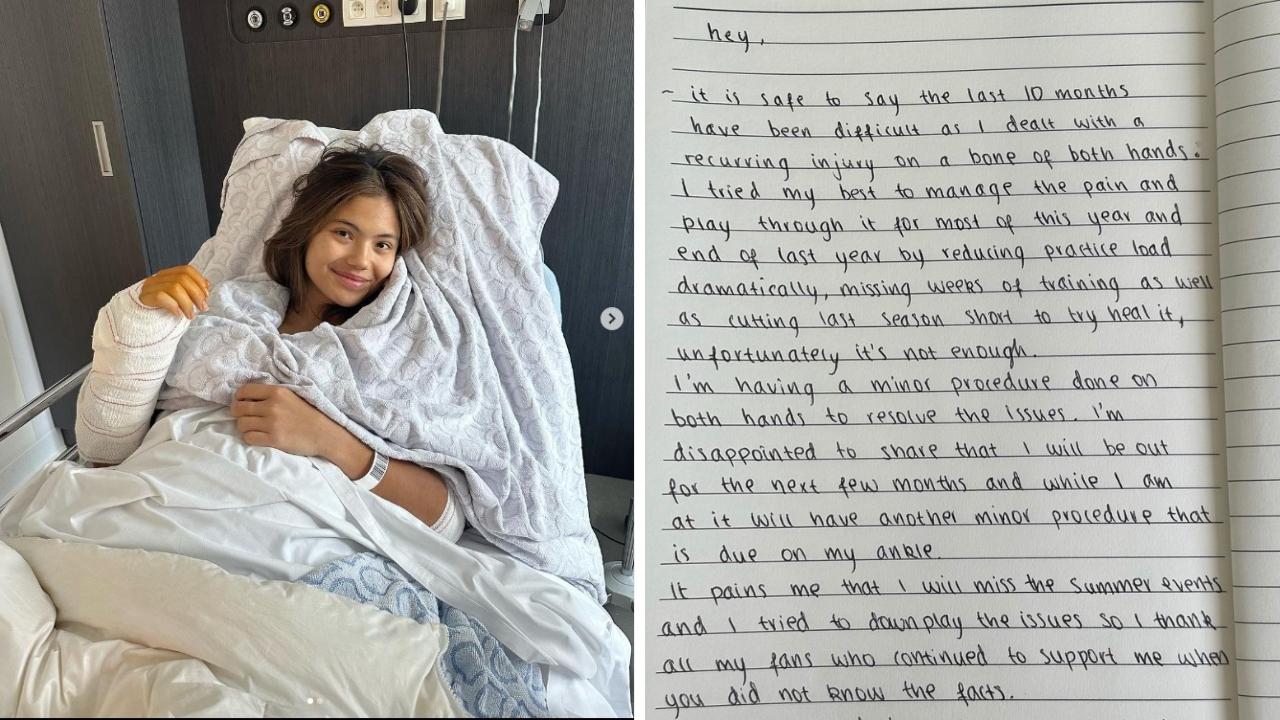 hey,
~ it is safe to say the last 10 months
have been difficult as I dealt with a
recurring injury on a bone of both hands.
I tried my best to manage the pain and
play through it for most of this year and
end of last year by reducing practice load
dramatically, missing weeks of training as well
as cutting last season short to try heal it,
unfortunately it's not enough.
I'm having a minor procedure done on
both hands to resolve the issues. I'm
disappointed to share that I will be out
for the next few months and while I am
at it will have another minor procedure that
is due on my ankle.
It pains me that I will miss the summer events
and I tried to downplay the issues so I thank
all my fans who continued to support me when
you did not know the facts.